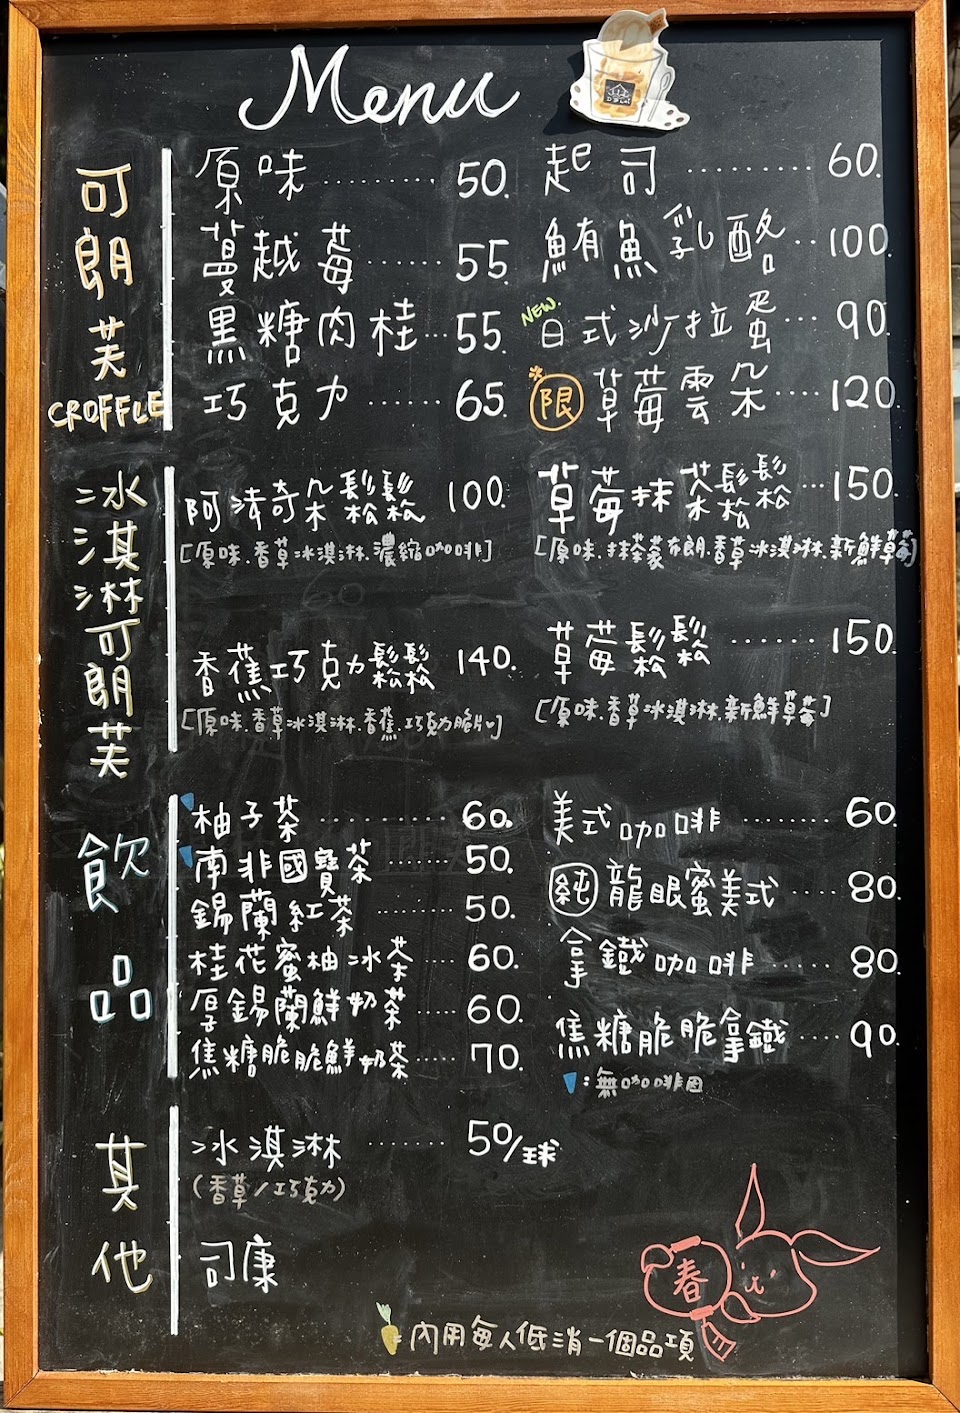 Menu
可朗芙
CROFFLE
原味 ........ 50.
蔓越莓 ...... 55
黑糖肉桂 ... 55.
巧克力 ...... 65.
起司 ........ 60.
鮪魚乳酪 ... 100.
NEW. 日式沙拉蛋 ... 90.
限 草莓雲朵 .... 120.
冰淇淋可朗芙
阿法奇朵鬆鬆 100.
[原味.香草冰淇淋.濃縮咖啡]
草莓抹茶鬆鬆 ... 150.
[原味.抹茶蒙布朗.香草冰淇淋.新鮮草莓]
香蕉巧克力鬆鬆 140.
[原味.香草冰淇淋.香蕉.巧克力脆片]
草莓鬆鬆 ....... 150.
[原味.香草冰淇淋.新鮮草莓]
飲品
柚子茶 .......... 60.
南非國寶茶 ...... 50.
錫蘭紅茶 ........ 50.
桂花蜜柚冰茶 .... 60.
厚錫蘭鮮奶茶 .... 60.
焦糖脆脆鮮奶茶 ... 70.
美式咖啡 ........ 60.
純 龍眼蜜美式 .... 80.
拿鐵咖啡 ....... 80.
焦糖脆脆拿鐵 .... 90.
:無咖啡因
其他
冰淇淋 ....... 50/球
(香草/巧克力)
司康
春
=內用每人低消一個品項